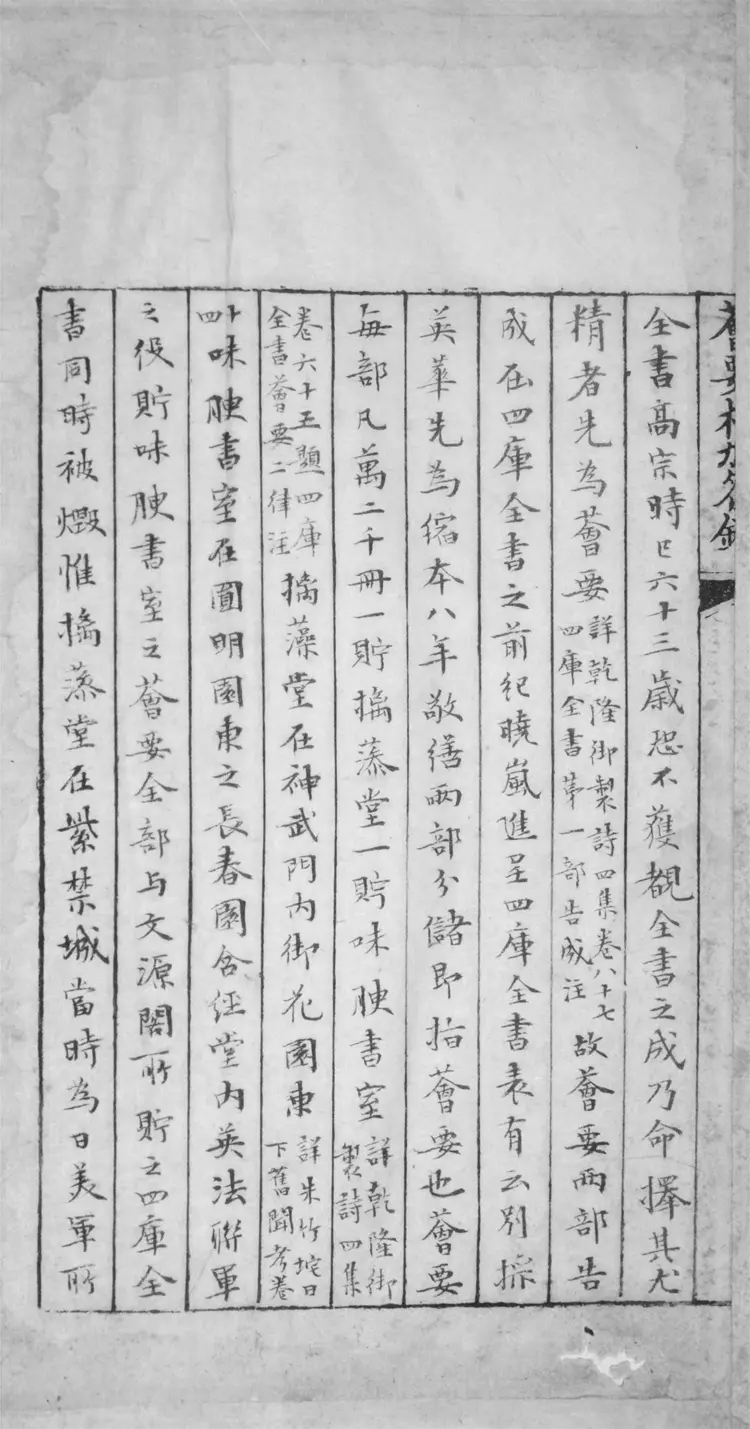 全書高宗時已六十三歲恐不獲覩全書之成乃命擇其尤
精者先為薈要詳乾隆御製詩四集卷八十七四庫全書第一部告成注故薈要兩部告
成在四庫全書之前紀曉嵐進呈四庫全書表有云別採
英華先為縮本八年敬繕兩部分儲即指薈要也薈要
每部凡萬二千冊一貯摛藻堂一貯味腴書室詳乾隆御製詩四集
卷六十五題四庫全書薈要二律注摛藻堂在神武門內御花園東詳朱竹垞日下舊聞考卷
十四味腴書室在圓明園東之長春園含經堂內英法聯軍
之役貯味腴書室之薈要全部与文源閣所貯之四庫全
書同時被燬惟摛藻堂在紫禁城當時為日美軍所